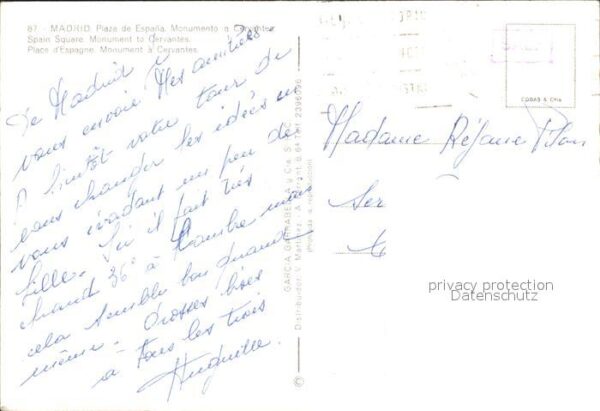 87. - MADRID. Plaza de España. Monumento a Cervantes
Spain Square. Monument to Cervantes.
Place d'Espagne. Monument à Cervantes.
De Madrid je
vous envoie mes amitiés
A bientôt votre tour de
vous changer les idées en
vous évadant un peu de
Lille. Ici il fait très
chaud 36° à l'ombre mais
cela semble bon quand
même. Grosses bises
à tous les trois
Huguette.
GARCIA GARRABELLA y Cia.
Distribuidor: V. Martinez
(Prohibida la reproducción)
©
COBAS & Cía
Madame Réjane
Ser
privacy protection
Datenschutz